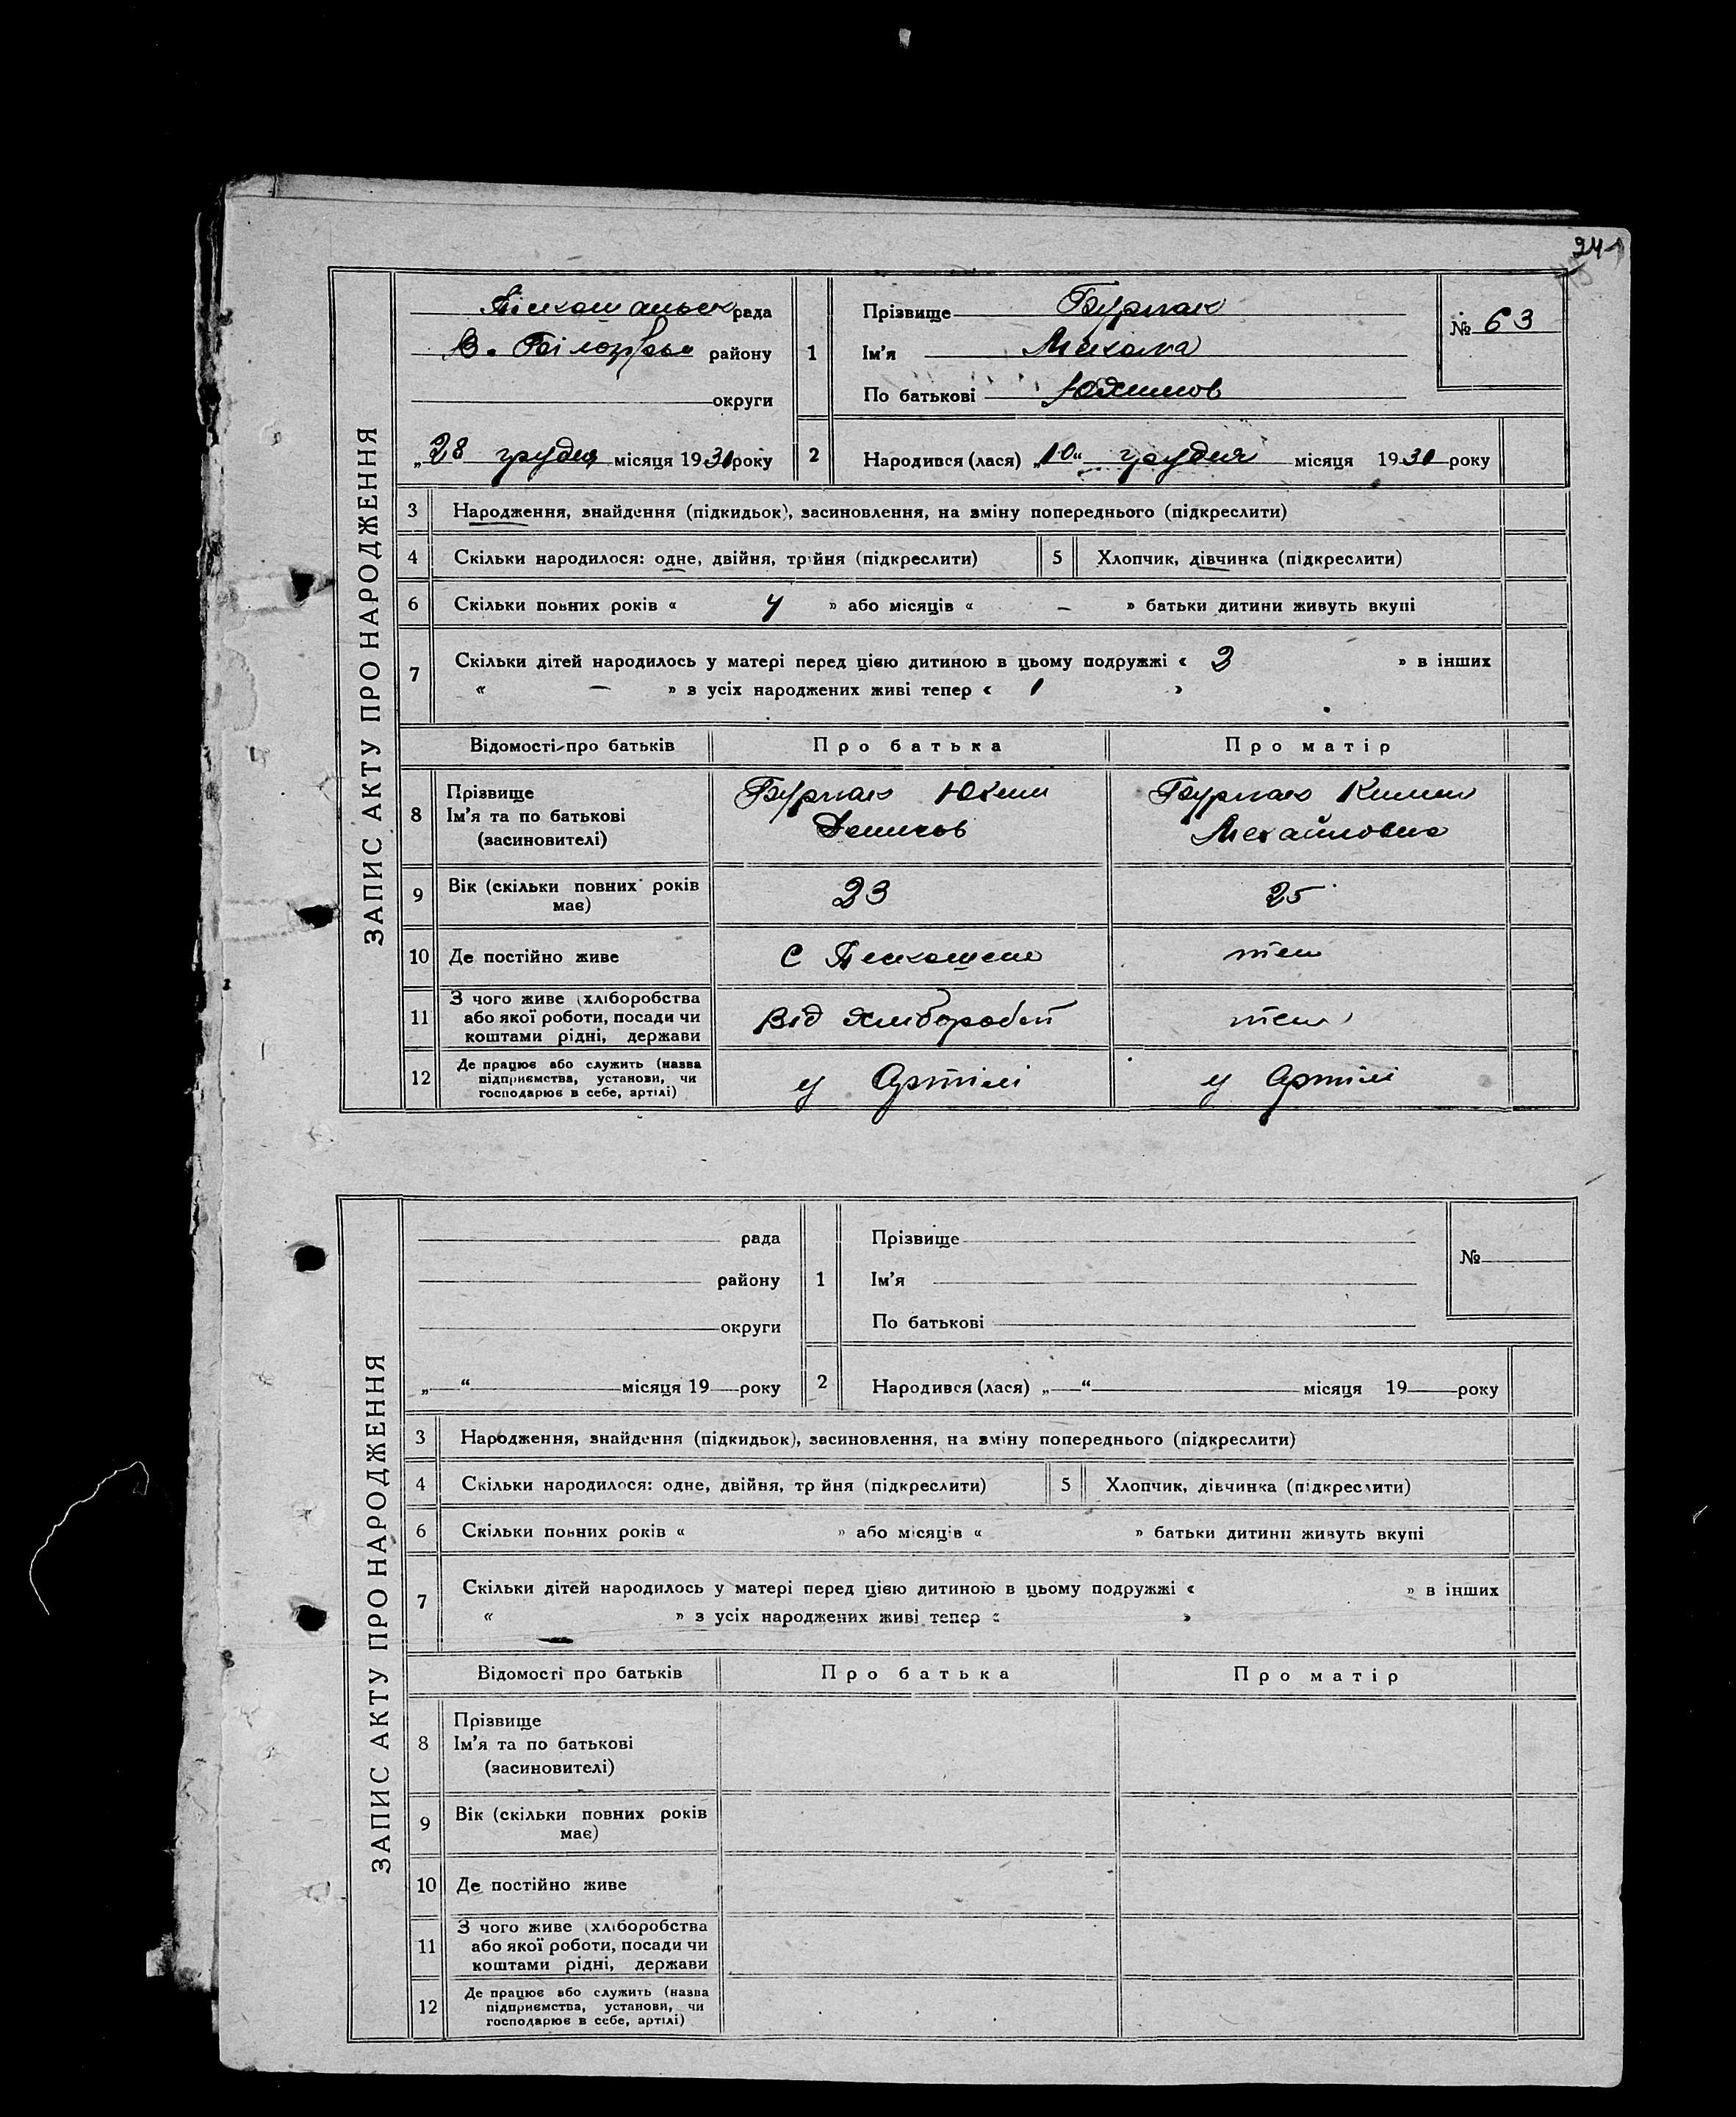 241
ЗАПИС АКТУ ПРО НАРОДЖЕННЯ
рада
В. Білозер. району
округи
„28 грудня місяця 1930 року
1
Прізвище Бурлак
Ім'я
По батькові Юхимов
№ 63
2
Народився (лася) „10“ грудня місяця 1930 року
3 Народження, знайдення (підкидьок), засиновлення, на зміну попереднього (підкреслити)
4 Скільки народилося: одне, двійня, трійня (підкреслити) 5 Хлопчик, дівчинка (підкреслити)
6 Скільки повних років « 4 » або місяців « – » батьки дитини живуть вкупі
7 Скільки дітей народилось у матері перед цією дитиною в цьому подружжі « 2 » в інших
« – » з усіх народжених живі тепер « 1 »
Відомості про батьків Про батька Про матір
8 Прізвище
Ім'я та по батькові
(засиновителі)
Бурлак Юхим
Бурлак
Михайловна
9 Вік (скільки повних років
має)
23 25
10 Де постійно живе
11 З чого живе (хліборобства
або якої роботи, посади чи
коштами рідні, держави
Від хлібороб
12 Де працює або служить (назва
підприємства, установи, чи
господарює в себе, артілі)
у Артілі у Артілі
ЗАПИС АКТУ ПРО НАРОДЖЕННЯ
рада
району
округи
„ “ місяця 19 року
1
Прізвище
Ім'я
По батькові
№
2
Народився (лася) „ “ місяця 19 року
3 Народження, знайдення (підкидьок), засиновлення, на зміну попереднього (підкреслити)
4 Скільки народилося: одне, двійня, тр йня (підкреслити) 5 Хлопчик, дівчинка (підкреслити)
6 Скільки повних років « » або місяців « » батьки дитини живуть вкупі
7 Скільки дітей народилось у матері перед цією дитиною в цьому подружжі « » в інших
« » з усіх народжених живі тепер « »
Відомості про батьків Про батька Про матір
8 Прізвище
Ім'я та по батькові
(засиновителі)
9 Вік (скільки повних років
має)
10 Де постійно живе
11 З чого живе (хліборобства
або якої роботи, посади чи
коштами рідні, держави
12 Де працює або служить (назва
підприємства, установи, чи
господарює в себе, артілі)